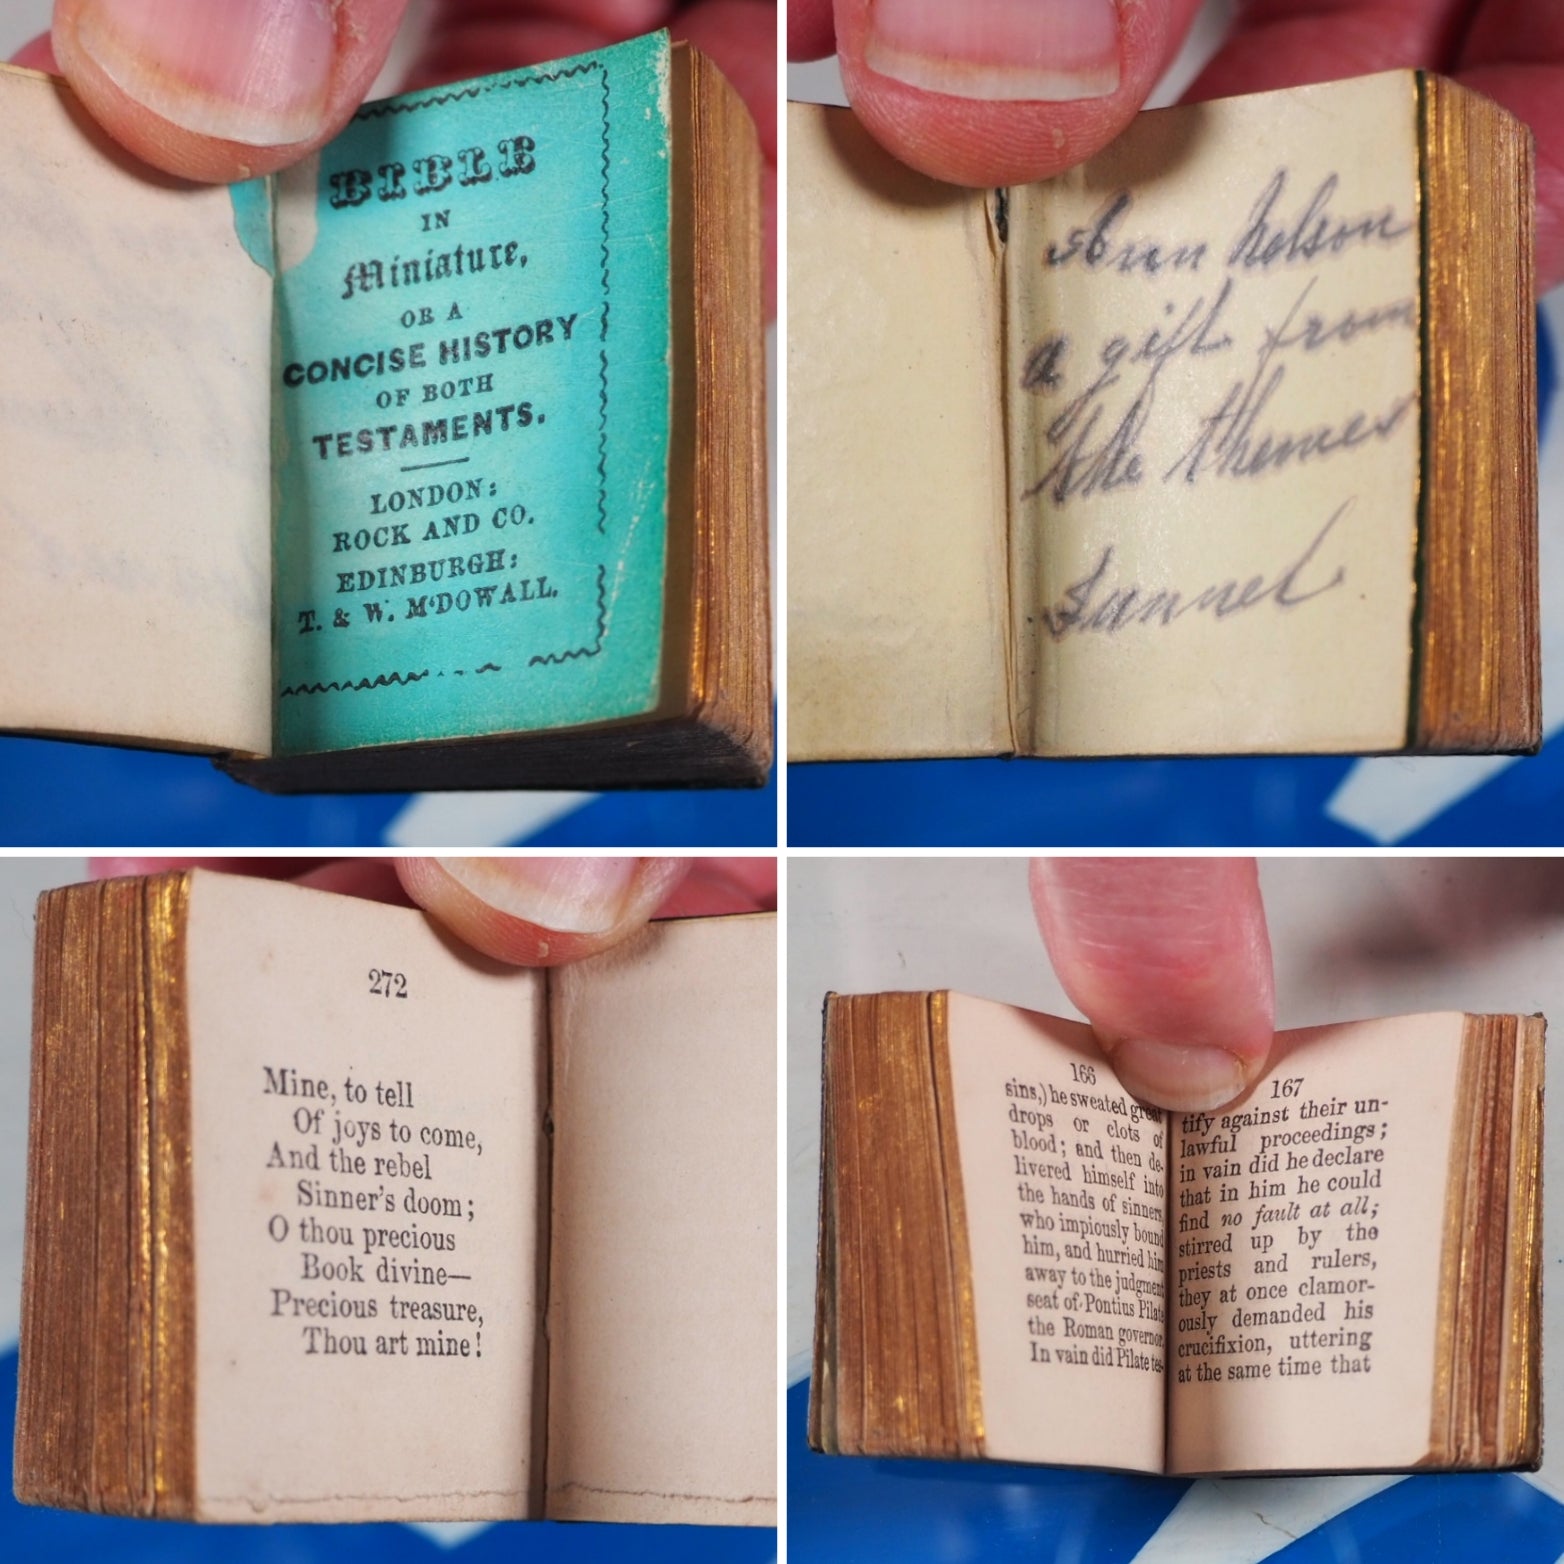 BIBLE
IN
Miniature,
OR A
CONCISE HISTORY
OF BOTH
TESTAMENTS.
LONDON:
ROCK AND CO.
EDINBURGH:
T. & W. M'DOWALL.
Ann Nelson
a gift from
the themes
272
Mine, to tell
Of joys to come,
And the rebel
Sinner's doom;
O thou precious
Book divine—
Precious treasure,
Thou art mine!
166
sins,) he sweated great
drops or clots of
blood; and then de-
livered himself into
the hands of sinners,
who impiously bound
him, and hurried him
away to the judgment
seat of Pontius Pilate
the Roman governor.
In vain did Pilate tes-
167
tify against their un-
lawful proceedings;
in vain did he declare
that in him he could
find no fault at all;
stirred up by the
priests and rulers,
they at once clamor-
ously demanded his
crucifixion, uttering
at the same time that